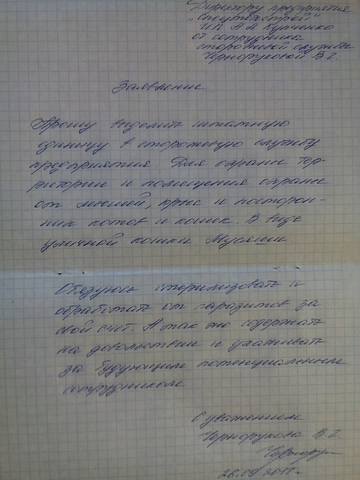 Директору предприятия
"Спецтехстрой"
И.П. А.А. Курченко
от сотрудника
сторожевой службы
Чернорукова В.Г.
Заявление
Прошу выделить штатную
единицу в сторожевую службу
предприятия Для охраны тер-
ритории и помещения охраны
от мышей, крыс и посторон-
них котов и кошек. В виде
уличной кошки Муськи.
Обязуюсь стерилизовать и
обработать от паразитов за
свой счет. А так же содержать
на довольствии и ухаживать
за будующим потенциальным
сотрудником
С уважением
Чернорукова В.Г.